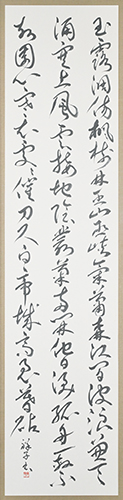 玉露凋傷楓樹林巫山巫峽氣蕭森江間波浪兼天
涌塞上風雲接地陰叢菊兩開他日淚孤舟一繫
故園心寒衣處處催刀尺白帝城高急暮砧